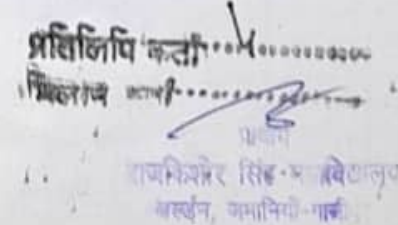 प्रतिलिपि कर्ता............
मिलान कर्ता............
प्राचार्य
राजकिशोर सिंह महाविद्यालय
जमानियाँ-गाजी